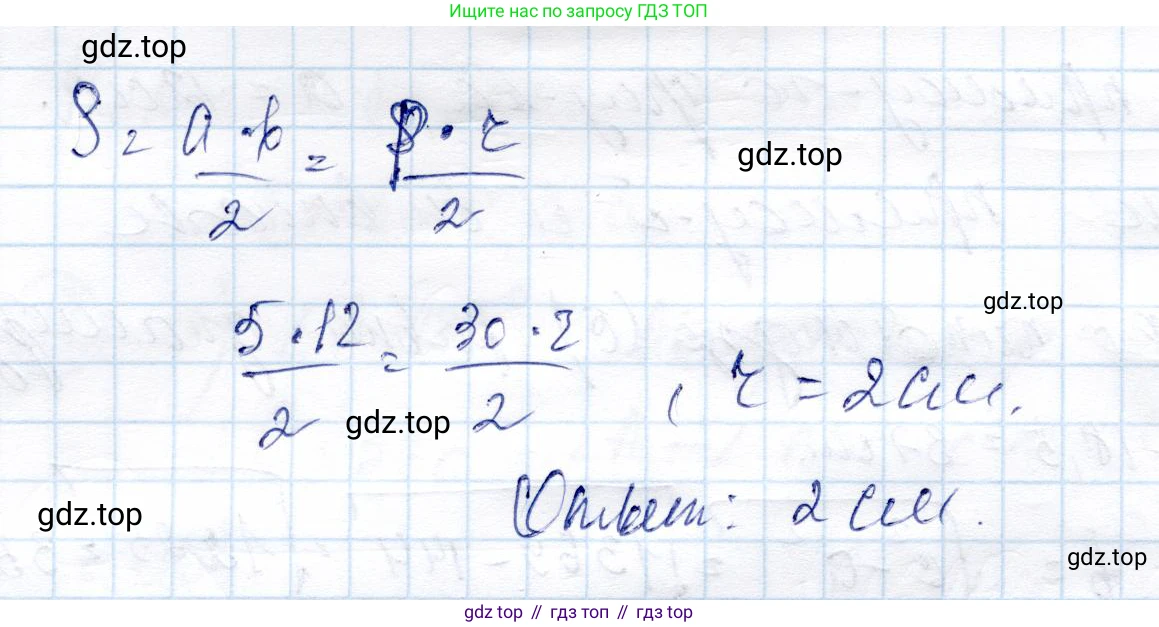 Ищите нас по запросу ГДЗ ТОП
gdz.top
S = a · b / 2 = P · r / 2
gdz.top
gdz.top
5 · 12 / 2 = 30 · r / 2 , r = 2 см.
gdz.top
Ответ: 2 см.
gdz.top
gdz.top
gdz top // гдз топ // гдз top